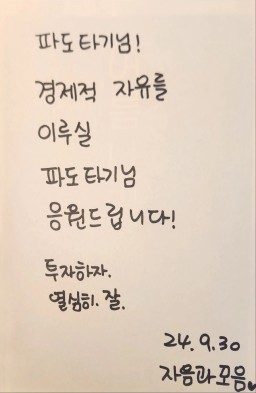 파도타기님!
경제적 자유를
이루실
파도타기님
응원드립니다!
투자하자.
열심히. 잘.
24.9.30
자음과모음